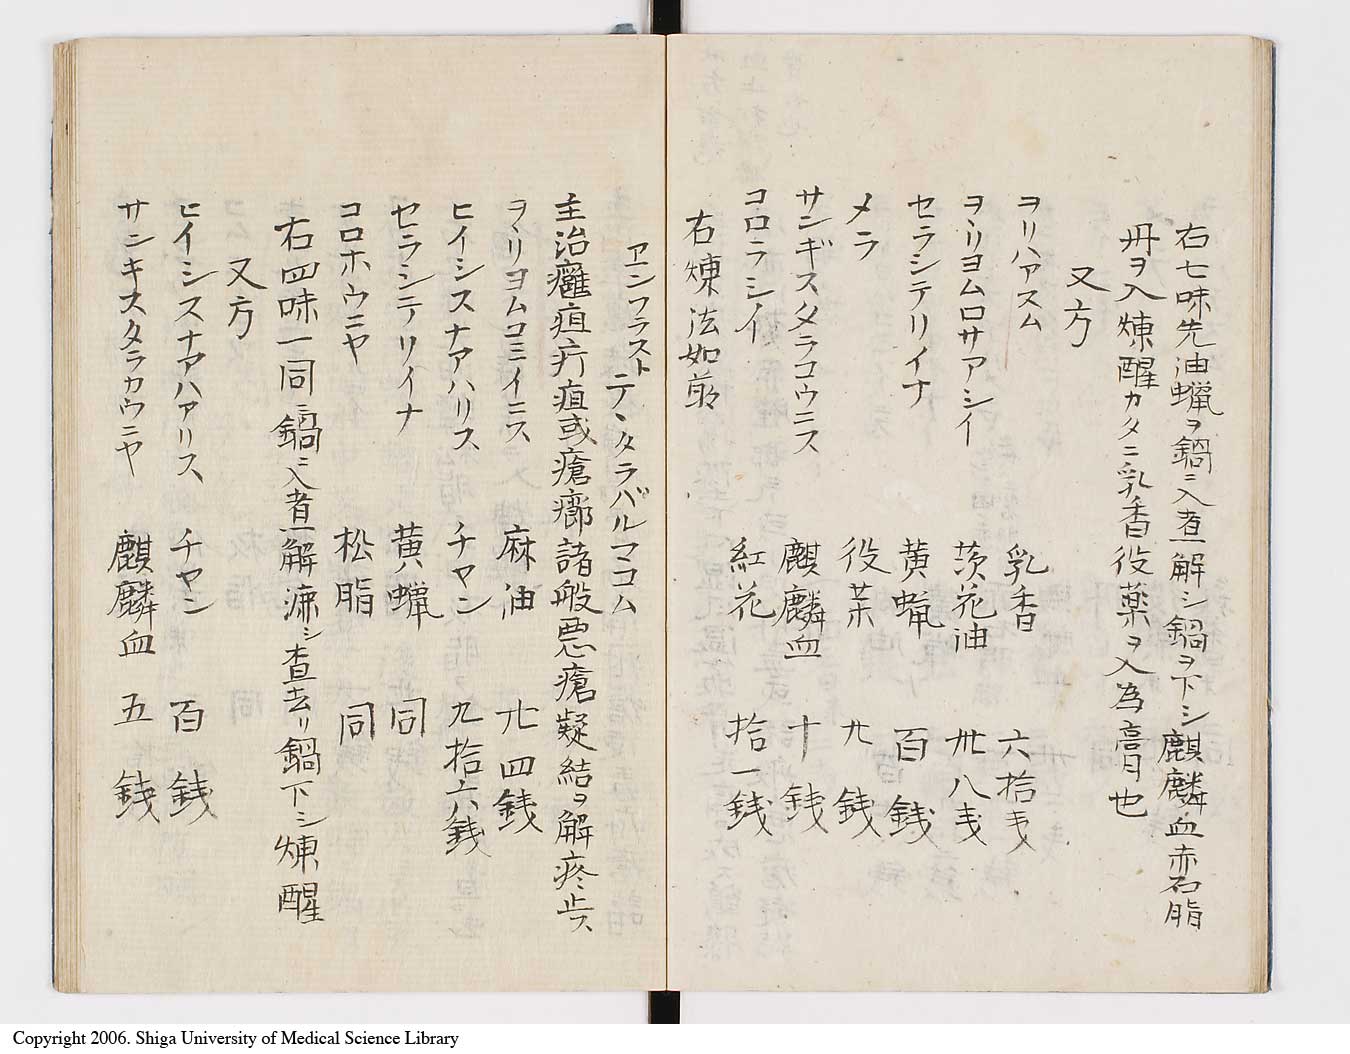 右七味先油蝋ヲ鍋ニ入煮解シ鍋ヲ下シ麒麟血赤石脂
丹ヲ入煉醒カタニ乳香役薬ヲ入為膏也
又方
ヲリハアスム 乳香 六拾戔
ヲヽリヨムロサアシイ 茨花油 卅八戔
セラシテリイナ 黄蝋 百銭
メラ 役薬 九銭
サンギスタラコウニス 麒麟血 十銭
コロラシイ 紅花 拾一銭
右煉法如前
ヱンフラスト テンタラバルマコム
主治癰疽疔疽或瘡癤諸般悪瘡凝結ヲ解疼止ス
ヲヽリヨムコミイニス 麻油 廿四銭
ヒイシスナアハリス チヤン 九拾六銭
セラシテリイナ 黄蝋 同
コロホウニヤ 松脂 同
右四味一同ニ鍋ニ入煮解漉シ査去リ鍋下シ煉醒
又方
ヒイシスナアハアリス チヤン 百銭
サンキスタラカウニヤ 麒麟血 五銭
Copyright 2006. Shiga University of Medical Science Library